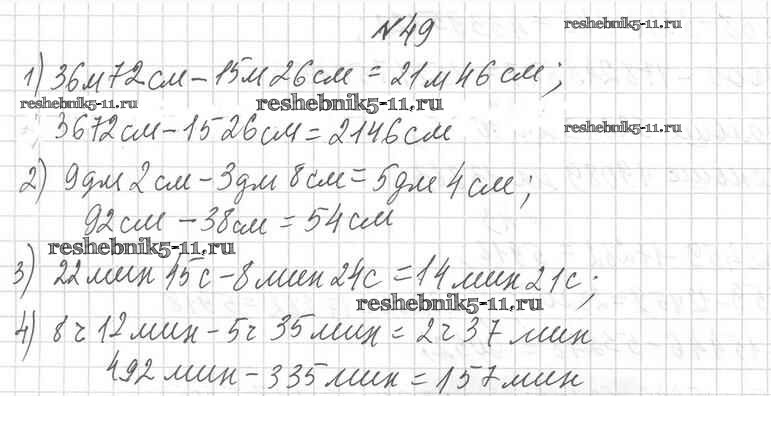 №49
reshebnik5-11.ru
1) 36м72см - 15м26см = 21м46см;
reshebnik5-11.ru reshebnik5-11.ru
3672см - 1526см = 2146см
reshebnik5-11.ru
2) 9дм 2см - 3дм 8см = 5дм 4см;
92см - 38см = 54см
reshebnik5-11.ru
3) 22мин 15с - 8мин 24с = 14мин 21с;
reshebnik5-11.ru
4) 8ч 12мин - 5ч 35мин = 2ч 37мин
492мин - 335мин = 157мин